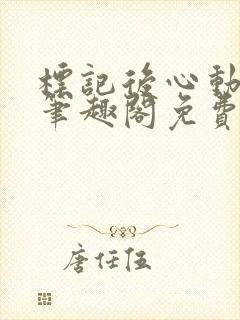 標記後心動
筆趣閣免費
唐任伍